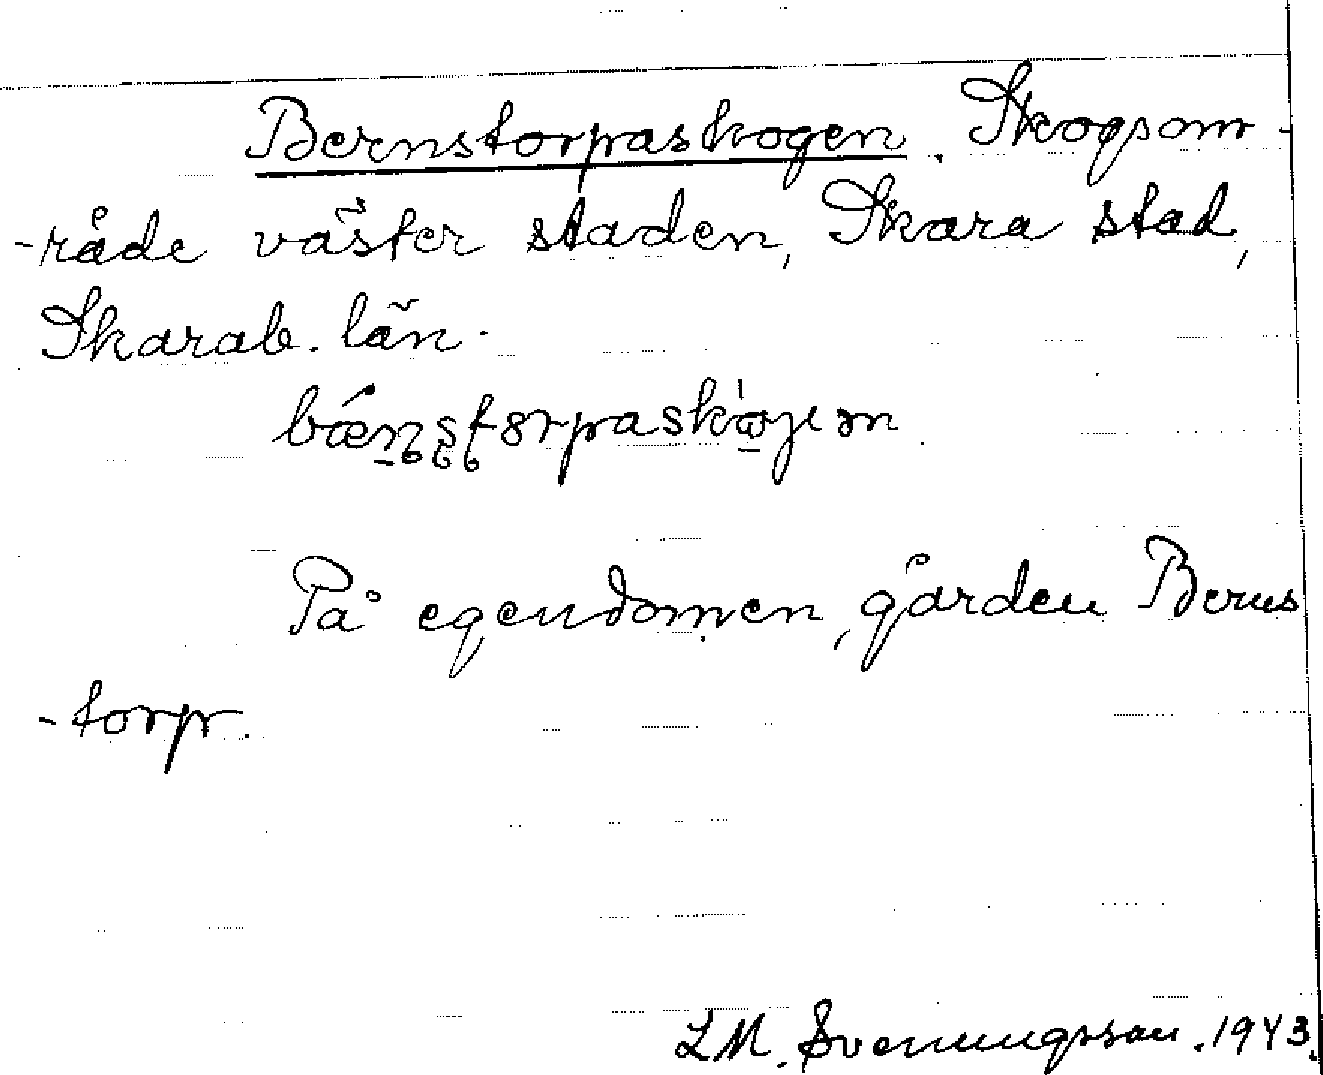 Bernstorpaskogen. Skogsom-
-råde väster staden, Skara stad,
Skarab. län.
På egendomen, gården Berns
-torp.
LM. Svenungsson. 1943.